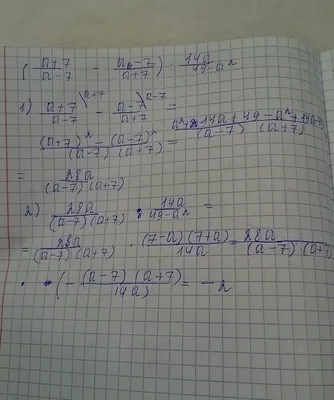 ( (a+7)/(a-7) - (a-7)/(a+7) ) : 14a/(49-a²)
1) (a+7)/(a-7) \a+7 - (a-7)/(a+7) \a-7 =
((a+7)² - (a-7)²)/((a-7)(a+7)) = (a²+14a+49-a²+14a-49)/((a-7)(a+7))
= 28a/((a-7)(a+7))
2) 28a/((a-7)(a+7)) : 14a/(49-a²) =
= 28a/((a-7)(a+7)) · ((7-a)(7+a))/14a = 28a/((a-7)(a+7))
· (- ((a-7)(a+7))/14a) = -2